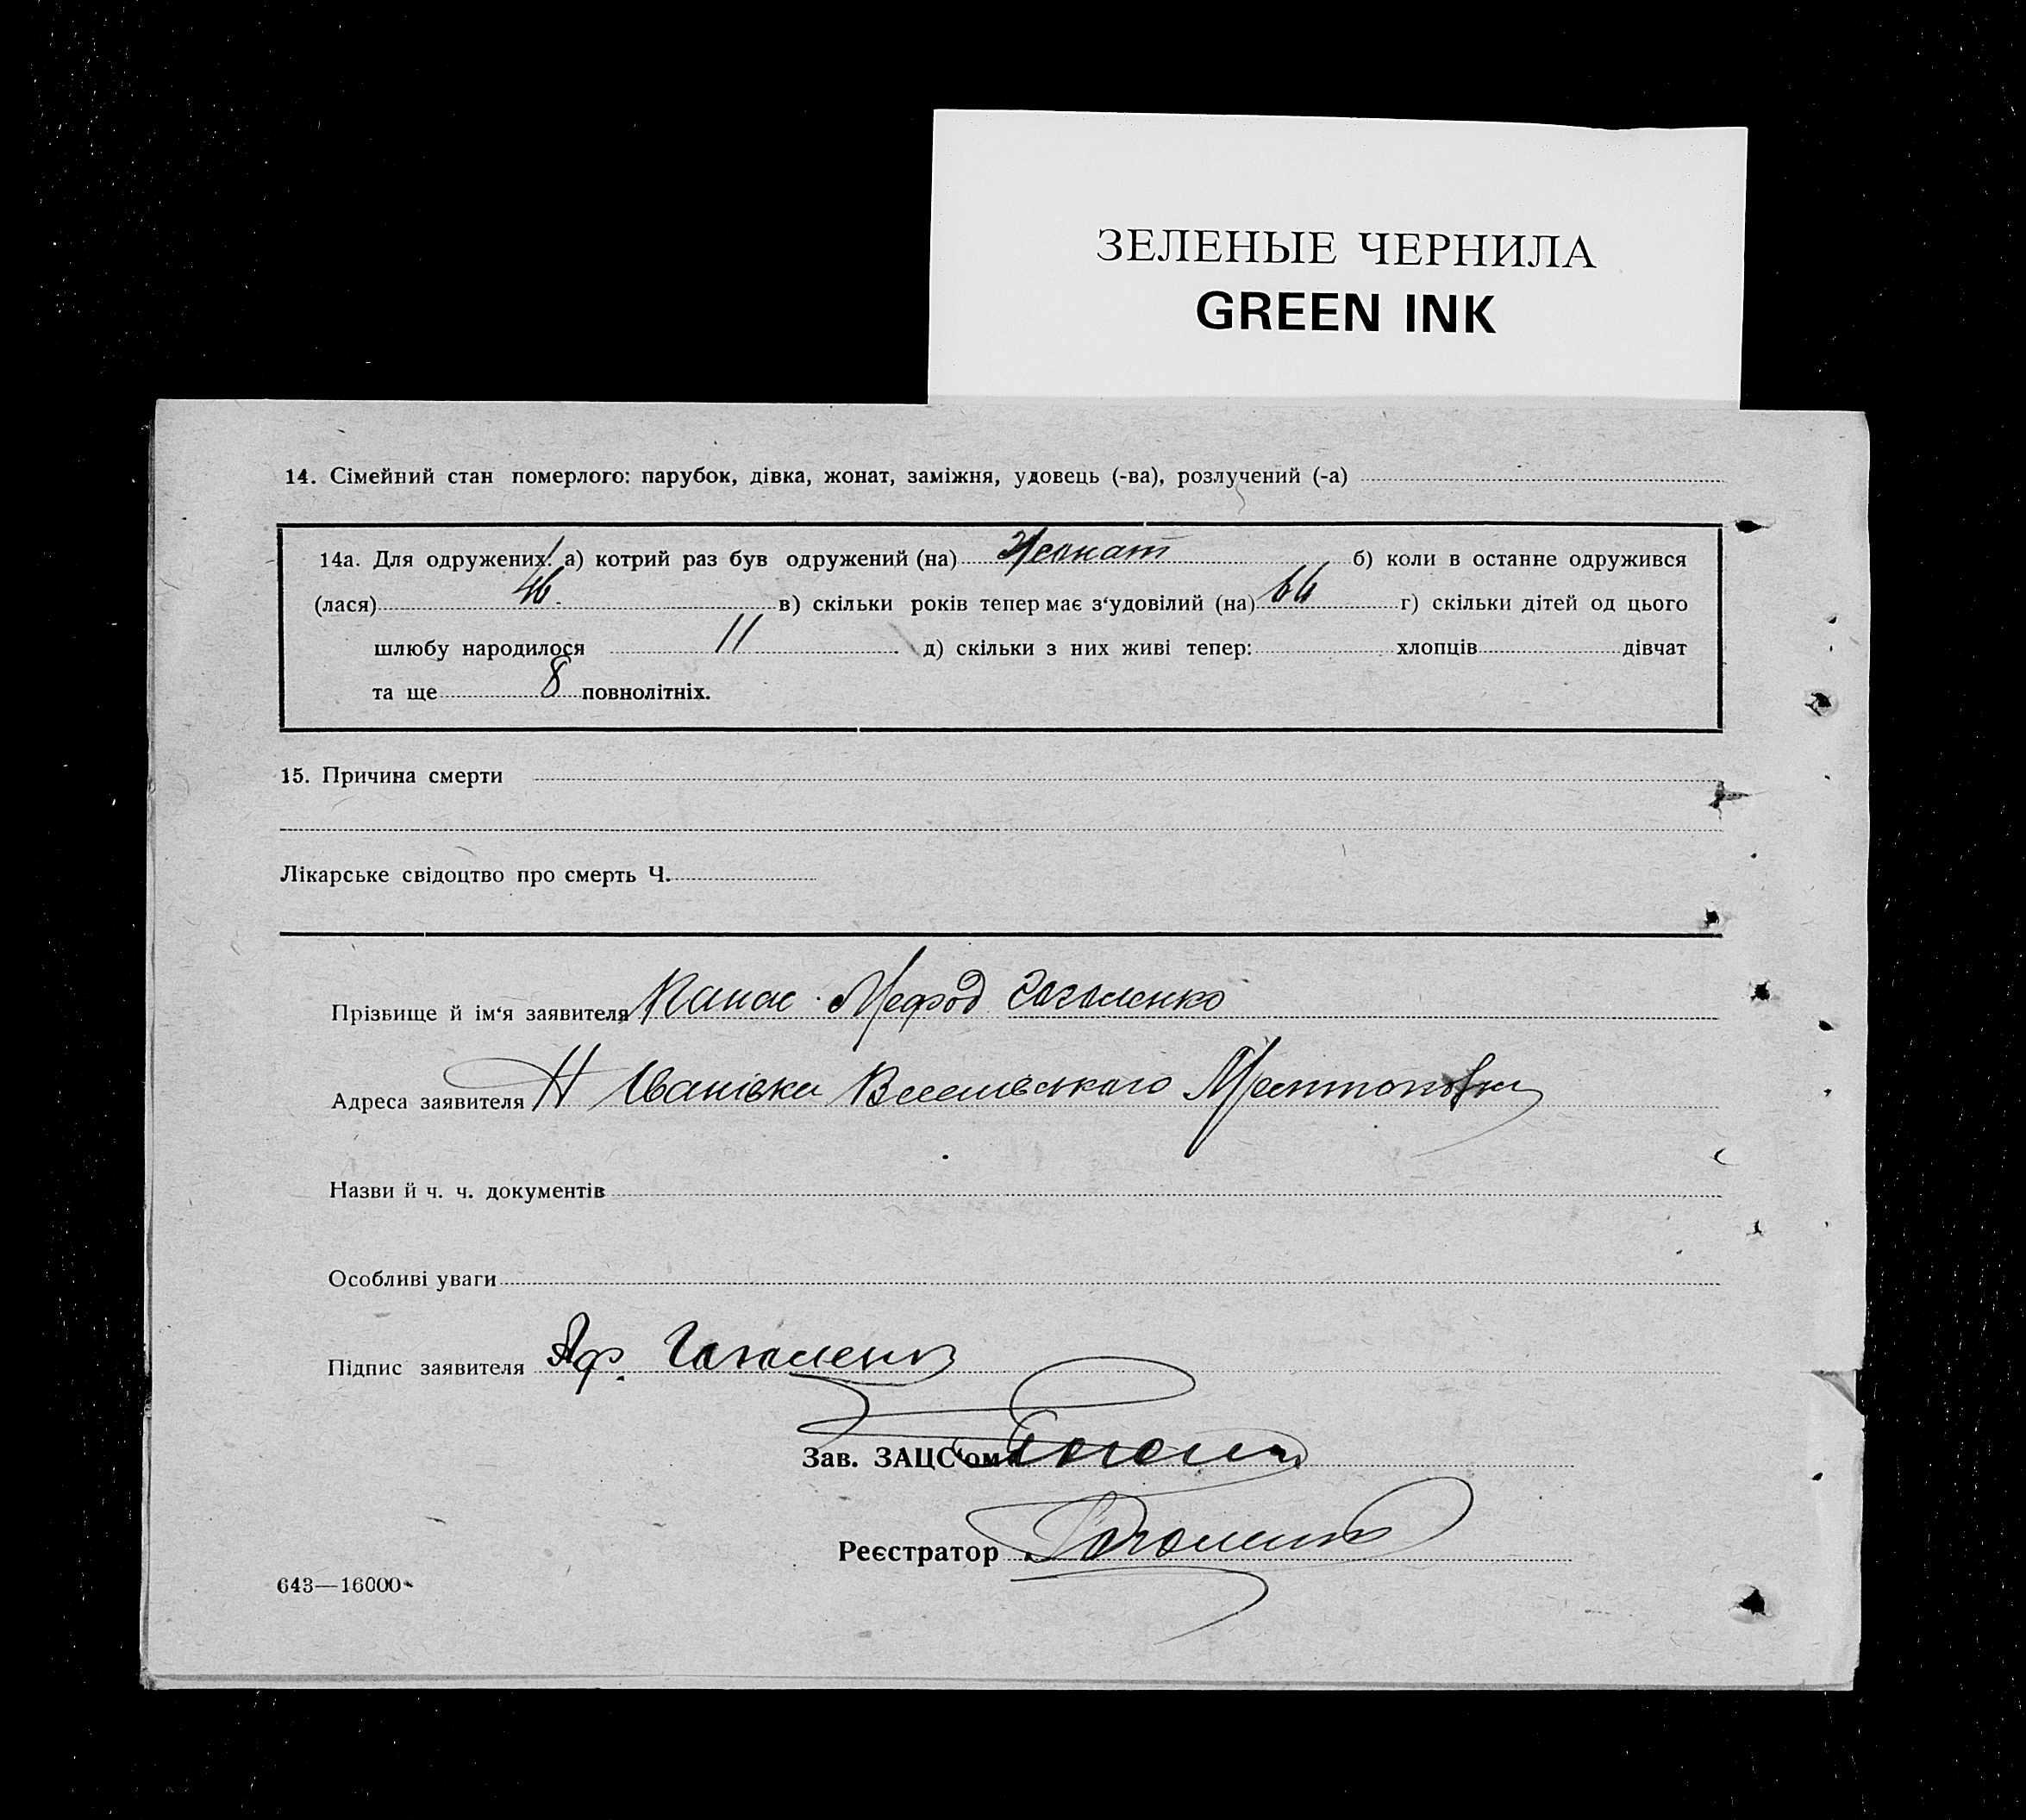 ЗЕЛЕНЫЕ ЧЕРНИЛА
GREEN INK
14. Сімейний стан померлого: парубок, дівка, жонат, заміжня, удовець (-ва), розлучений (-а)
14а. Для одружених: а) котрий раз був одружений (на) Жонат б) коли в останнє одружився
(лася) 46. в) скільки років тепер має з‘удовілий (на) 66 г) скільки дітей од цього
шлюбу народилося 11 д) скільки з них живі тепер: хлопців дівчат
та ще 8 повнолітніх.
15. Причина смерти
Лікарське свідоцтво про смерть Ч.
Прізвище й ім‘я заявителя Панас Мефод Гоголенко
Адреса заявителя Н Іванівка
Назви й ч. ч. документів
Особливі уваги
Підпис заявителя Аф. Гоголенко
Зав. ЗАЦС‘ом
Реєстратор
643—16000